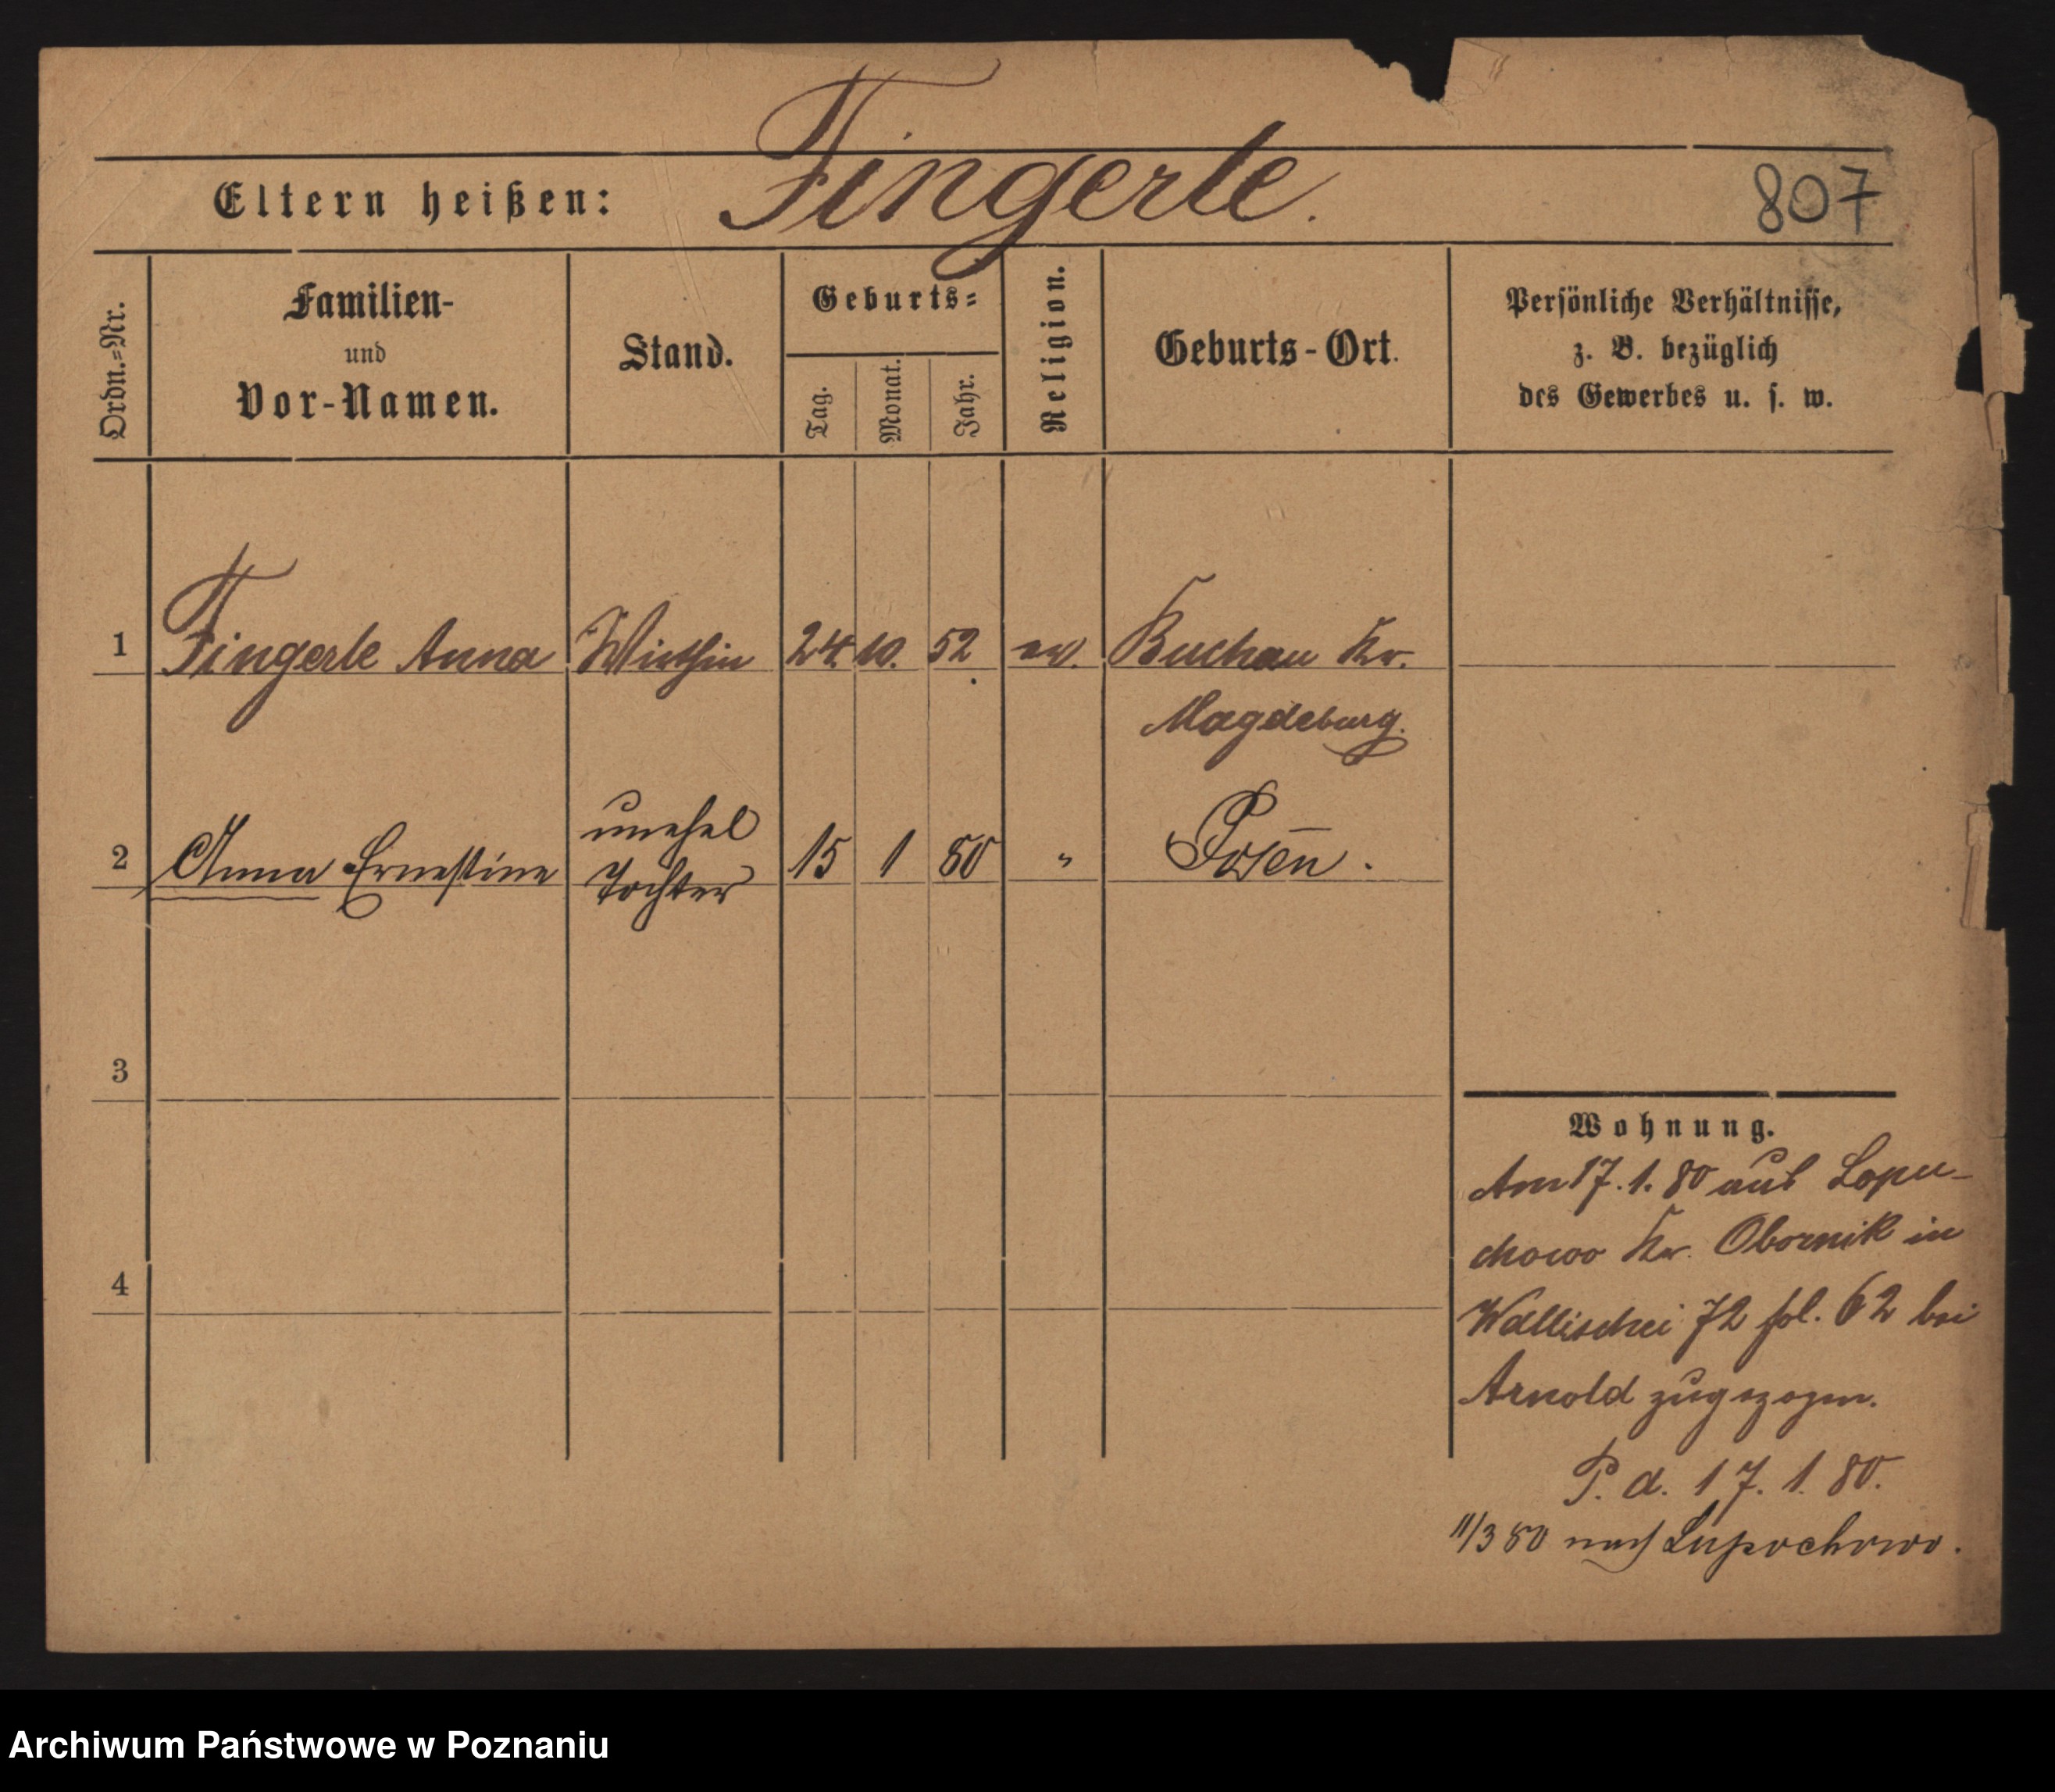 Fingerle.
Eltern heißen:
807
Ordn.=Nr.
Familien-
und
Vor-Namen.
Stand.
Geburts=
Tag.
Monat.
Jahr.
Religion.
Geburts-Ort.
Persönliche Verhältnisse,
z. B. bezüglich
des Gewerbes u. s. w.
1 Fingerle Anna Wirthin 24. 10. 52 ev. Buckau Kr.
Magdeburg.
unehel
2 Anna Ernestine Tochter 15 1 80 " Posen.
3
4
Wohnung.
Am 17. 1. 80 aus Lopu-
chowo Kr. Obornik in
Wallischei 72 fol. 62 bei
Arnold zugezogen.
P. d. 17. 1. 80.
11/3 80 nach Lupochowo.
Archiwum Państwowe w Poznaniu